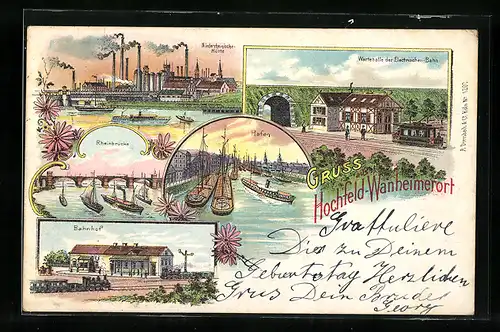 Niederrheinische-
Hütte
Wartehalle der Electrischen-Bahn.
Rheinbrücke
Hafen
Bahnhof
GRUSS
aus
Hochfeld-Wanheimerort
Gratuliere
Dir zu Deinem
Geburtstag Herzlichen
Grus Dein Bruder
Georg